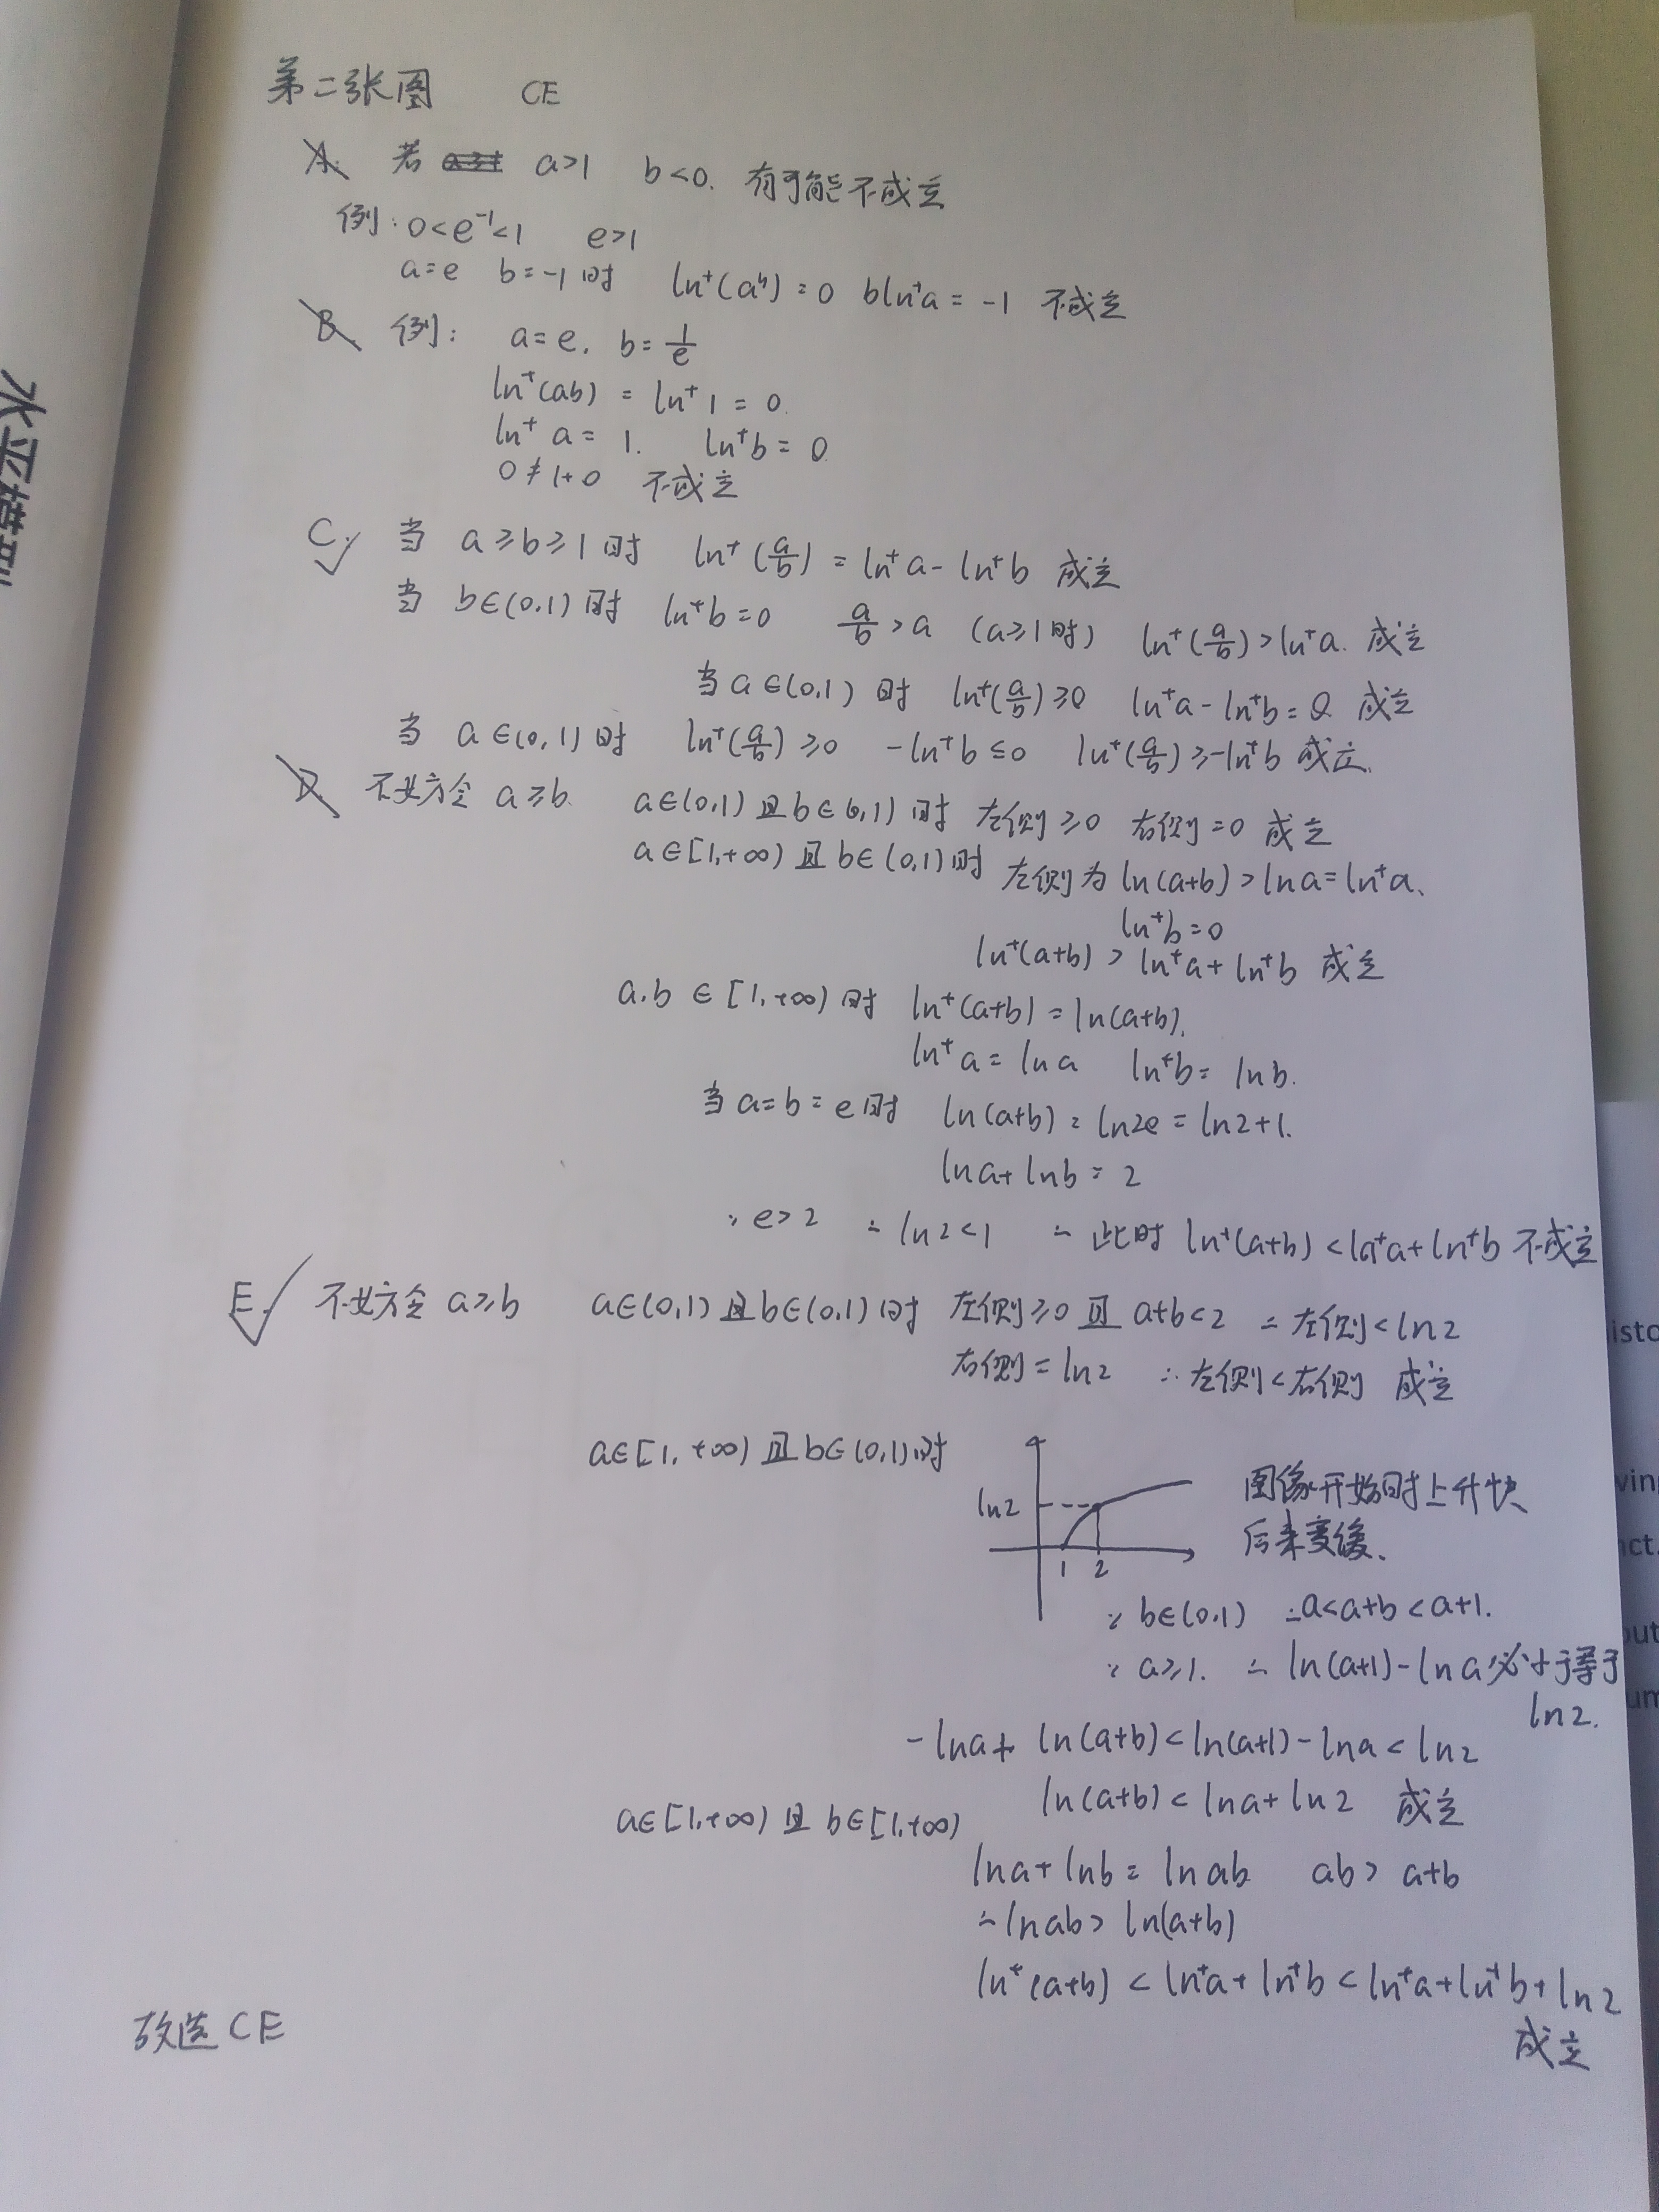 第二张图 CE
A. 若 a>1 b<0. 有可能不成立
例: 0<e⁻¹<1 e>1
a=e b=-1时 ln⁺(aᵇ)=0 bln⁺a=-1 不成立
B 例: a=e. b=1/e
ln⁺(ab) = ln⁺1=0.
ln⁺a=1. ln⁺b=0
0≠1+0 不成立
C. √ 当 a≥b≥1时 ln⁺(a/b)=ln⁺a-ln⁺b 成立
当 b∈(0,1)时 ln⁺b=0 a/b>a (a≥1时) ln⁺(a/b)>ln⁺a. 成立
当a∈(0,1)时 ln⁺(a/b)≥0 ln⁺a-ln⁺b=0 成立
当 a∈(0,1)时 ln⁺(a/b)≥0 -ln⁺b≤0 ln⁺(a/b)≥-ln⁺b 成立.
D 不妨令 a≥b. a∈(0,1)且b∈(0,1)时 左侧≥0 右侧=0 成立
a∈[1,+∞)且b∈(0,1)时 左侧为ln(a+b)>lna=ln⁺a、
ln⁺b=0
ln⁺(a+b)>ln⁺a+ln⁺b 成立
a.b∈[1,+∞)时 ln⁺(a+b)=ln(a+b).
ln⁺a=lna ln⁺b=lnb.
当a=b=e时 ln(a+b)=ln2e=ln2+1.
lna+lnb=2
∵e>2 ∴ln2<1 ∴此时ln⁺(a+b)<ln⁺a+ln⁺b 不成立
E. √ 不妨令a≥b a∈(0,1)且b∈(0,1)时 左侧≥0且a+b<2 ∴左侧<ln2
右侧=ln2 ∴左侧<右侧 成立
a∈[1,+∞)且b∈(0,1)时
ln2
1 2
图像开始时上升快
后来变缓.
∵b∈(0,1) ∴a<a+b<a+1.
∵a≥1. ∴ln(a+1)-lna必小于等于
ln2.
-lna+ ln(a+b)<ln(a+1)-lna<ln2
ln(a+b)<lna+ln2 成立
a∈[1,+∞)且b∈[1,+∞)
lna+lnb=lnab ab>a+b
∴lnab>ln(a+b)
ln⁺(a+b)<ln⁺a+ln⁺b<ln⁺a+ln⁺b+ln2
成立
故选CE